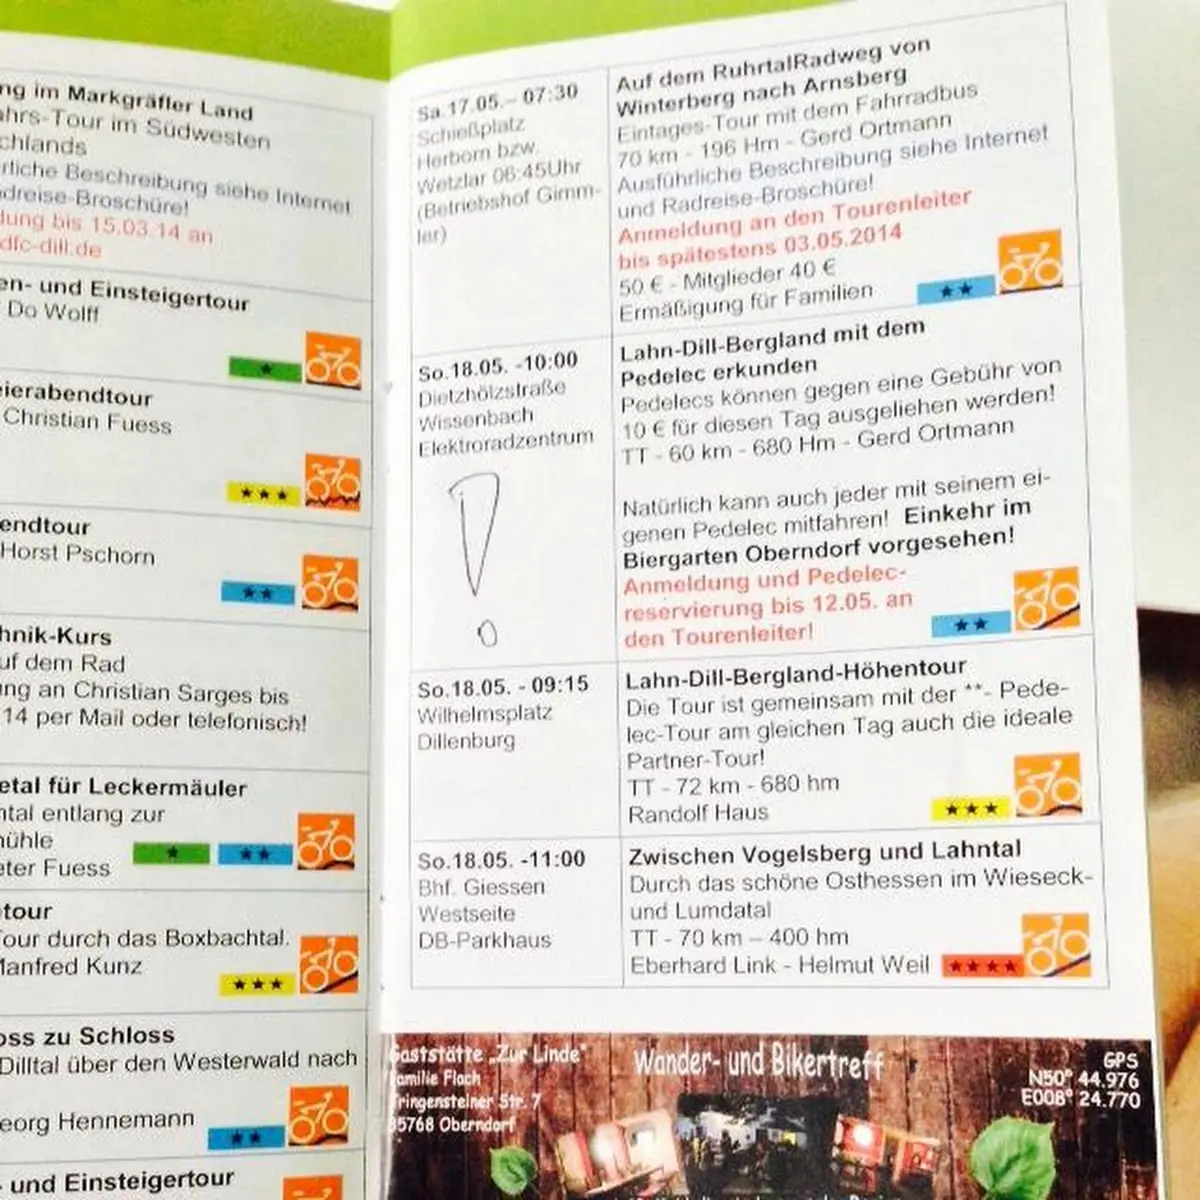 ng im Markgräfler Land
ahrs-Tour im Südwesten
chlands
rliche Beschreibung siehe Internet
dreise-Broschüre!
dung bis 15.03.14 an
dfc-dill.de
en- und Einsteigertour
Do Wolff
eierabendtour
Christian Fuess
endtour
Horst Pschorn
hnik-Kurs
uf dem Rad
ung an Christian Sarges bis
14 per Mail oder telefonisch!
etal für Leckermäuler
ntal entlang zur
mühle
eter Fuess
tour
Tour durch das Boxbachtal.
Manfred Kunz
oss zu Schloss
Dilltal über den Westerwald nach
eorg Hennemann
- und Einsteigertour
Sa.17.05.– 07:30
Schießplatz
Herborn bzw.
Wetzlar 06:45Uhr
(Betriebshof Gimm-
ler)
Auf dem RuhrtalRadweg von
Winterberg nach Arnsberg
Eintages-Tour mit dem Fahrradbus
70 km - 196 Hm - Gerd Ortmann
Ausführliche Beschreibung siehe Internet
und Radreise-Broschüre!
Anmeldung an den Tourenleiter
bis spätestens 03.05.2014
50 € - Mitglieder 40 €
Ermäßigung für Familien
So.18.05. -10:00
Dietzhölzstraße
Wissenbach
Elektroradzentrum
!
Lahn-Dill-Bergland mit dem
Pedelec erkunden
Pedelecs können gegen eine Gebühr von
10 € für diesen Tag ausgeliehen werden!
TT - 60 km - 680 Hm - Gerd Ortmann
Natürlich kann auch jeder mit seinem ei-
genen Pedelec mitfahren! Einkehr im
Biergarten Oberndorf vorgesehen!
Anmeldung und Pedelec-
reservierung bis 12.05. an
den Tourenleiter!
So.18.05. - 09:15
Wilhelmsplatz
Dillenburg
Lahn-Dill-Bergland-Höhentour
Die Tour ist gemeinsam mit der **- Pede-
lec-Tour am gleichen Tag auch die ideale
Partner-Tour!
TT - 72 km - 680 hm
Randolf Haus
So.18.05. -11:00
Bhf. Giessen
Westseite
DB-Parkhaus
Zwischen Vogelsberg und Lahntal
Durch das schöne Osthessen im Wieseck-
und Lumdatal
TT - 70 km – 400 hm
Eberhard Link - Helmut Weil
Gaststätte „Zur Linde"
Familie Flach
Tringensteiner Str. 7
35768 Oberndorf
Wander- und Bikertreff
GPS
N50° 44.976
E008° 24.770